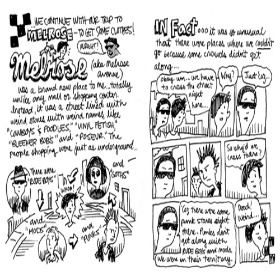 WE CONTINUE WITH OUR TRIP TO
MELROSE — TO GET SOME CLOTHES!
ALRIGHT!
Melrose
(aka Melrose
Avenue)
was a brand new place to me...totally
unlike any mall or shopping center.
Instead, it was a street lined with
weird stores with weird names like
"COWBOYS & POODLES," "VINYL FETISH,"
"BLEEKER BOBS" and "POSEUR." The
people shopping were just as underground.
There were
"RUDE BOYS"
and
"GOTHS"
and
"MODS"
and
IN Fact...it was so unusual
that there were places where we couldn't
go because some crowds didn't get
along...
okay um... we have
to cross the street
right
here...
Why?
Just cuz.
So why'd we
cross there?
Cuz there were some
punks standing right
there. Punks don't
get along with
RUDE BOYS and mods
we were in their territory.
Good
Weird.